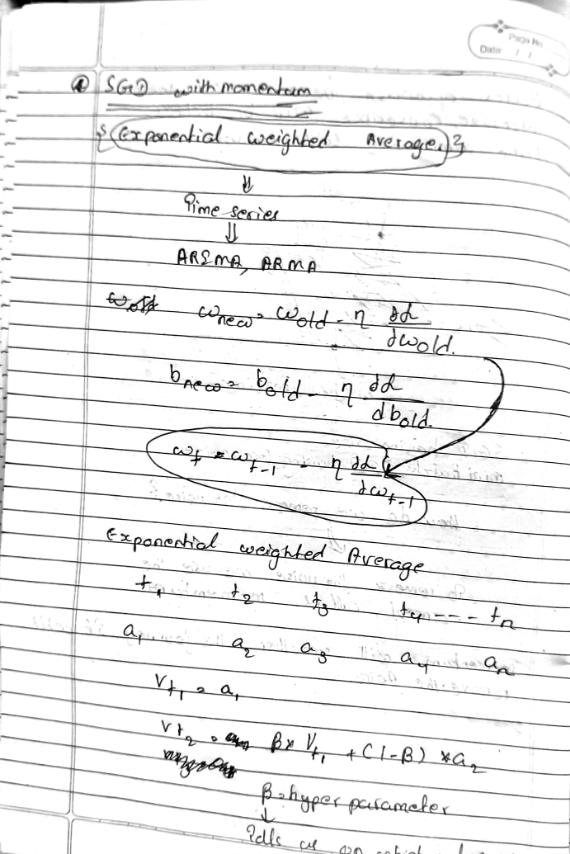 Page No.
Date / /
SGD with momentum
{Exponential weighted Average}
⇓
Time series
⇓
ARIMA, ARMA
w_new = w_old - η ∂L/∂w_old.
b_new = b_old - η ∂L/∂b_old.
w_t = w_t-1 - η ∂L/∂w_t-1
Exponential weighted Average
t_1 t_2 t_3 t_4 - - - t_n
a_1 a_2 a_3 a_4 a_n
V_t1 = a_1
V_t2 = β * V_t1 + (1-β) * a_2
β = hyper parameter
↓
Tells us on